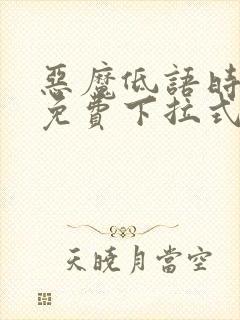 惡魔低語時
免費下拉式
天曉月當空